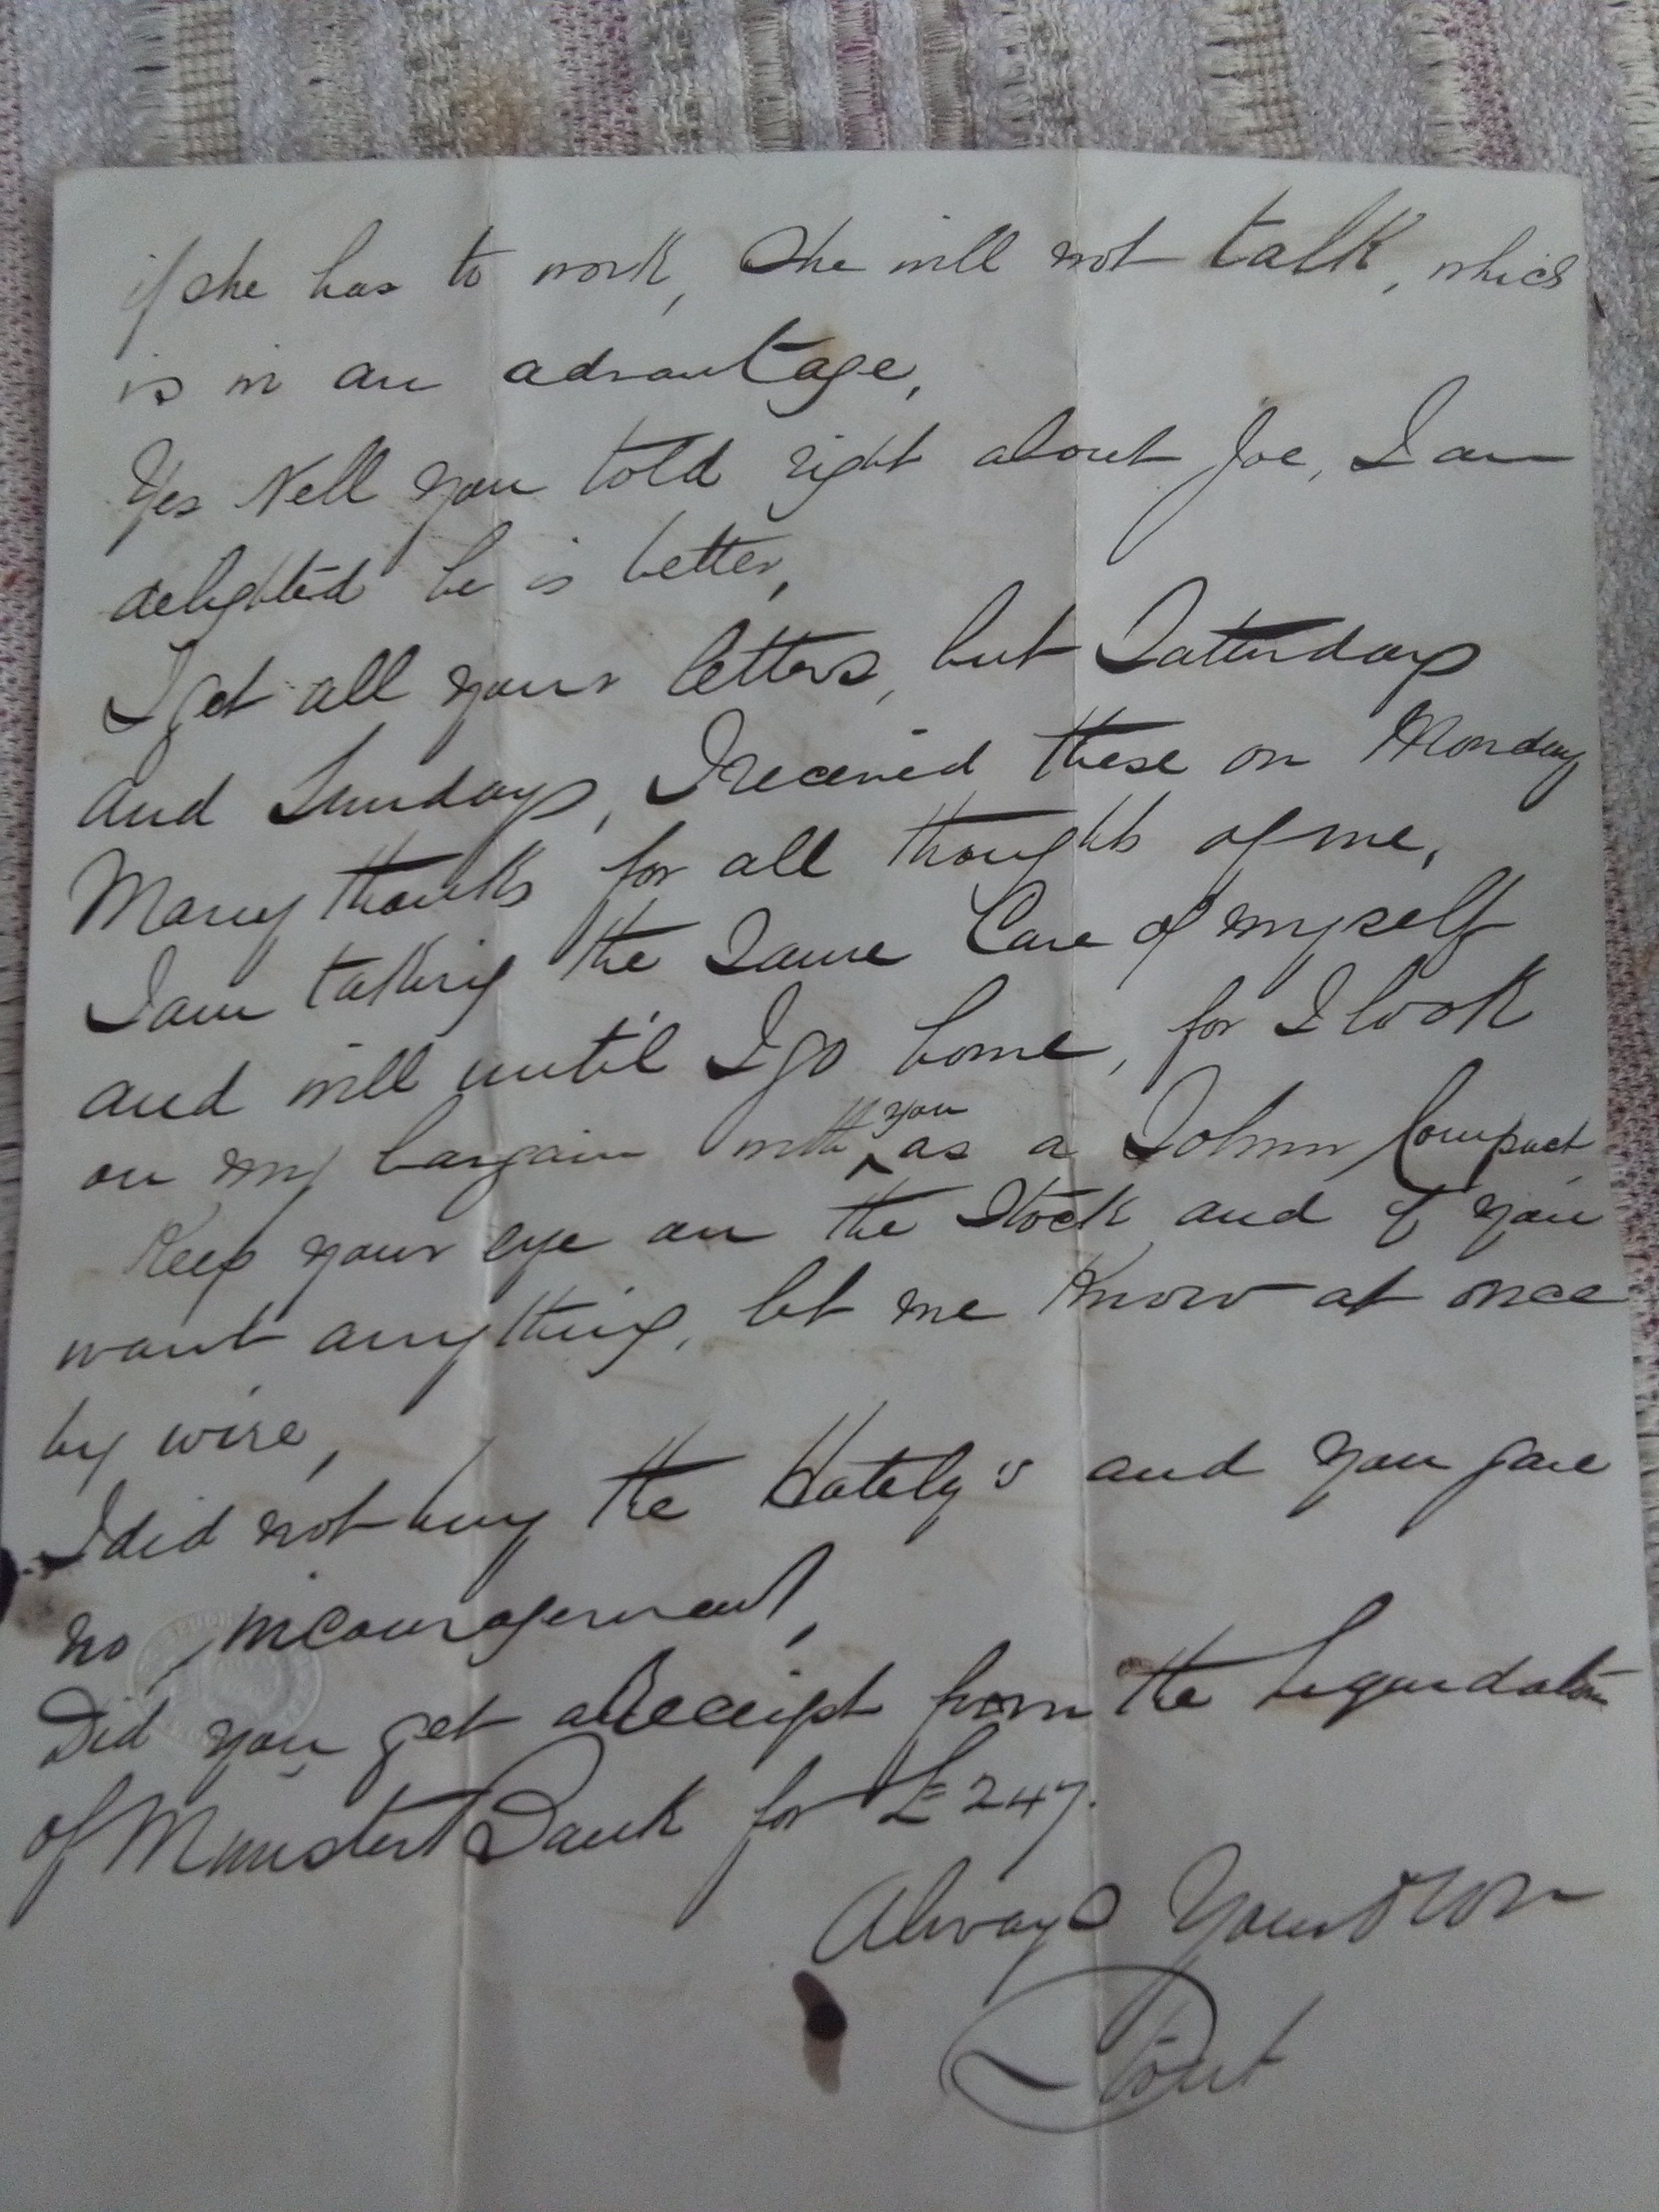 if she has to work, She will not talk, which
is in an advantage,
Yes Nell you told right about Joe, I am
delighted he is better,
I get all your letters, but Satturdays
and Sundays, I received these on Monday
Many thanks for all thoughts of me,
I am taking the Same Care of myself
and will until I go home, for I look
on my bargain with you as a Solumn Compact
Keep your eye on the Stock and if you
want anything, let me know at once
by wire,
I did not buy the Hately's and you gave
no incouragement,
Did you get a Receipt from the Liquidators
of Munster Bank for £247.
Always Your Own